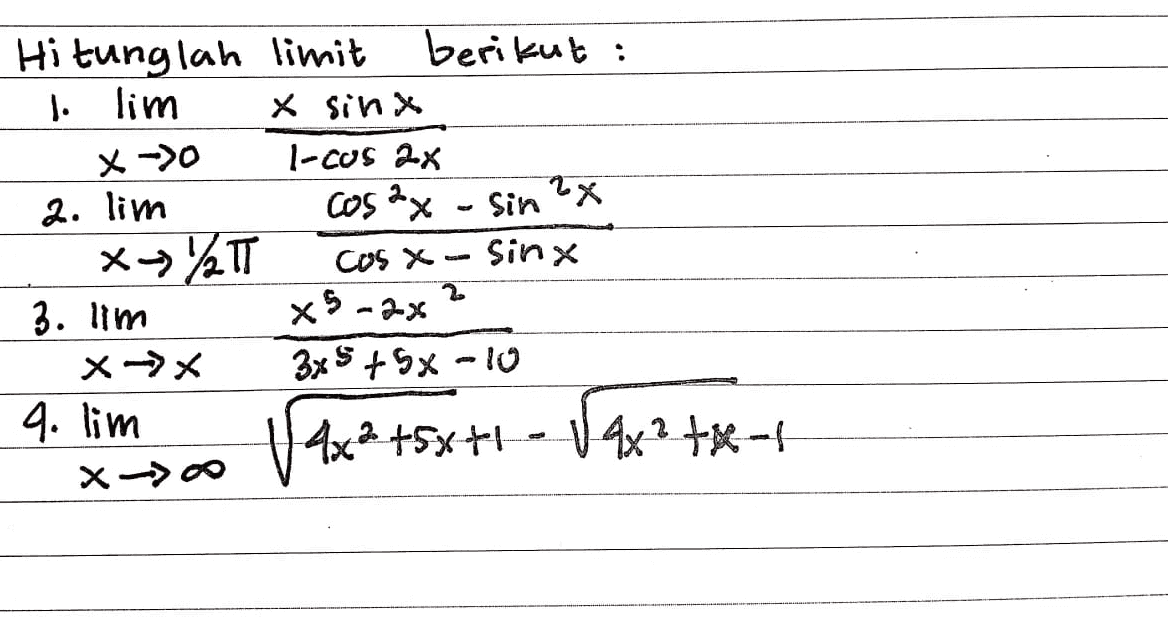 Hitunglah limit berikut :
1. lim x sin x
x→0 1-cos 2x
2. lim cos²x - sin²x
x→½π cos x - sin x
3. lim x⁵ - 2x²
x→x 3x⁵ + 5x - 10
4. lim √4x² + 5x + 1 - √4x² + x - 1
x→∞